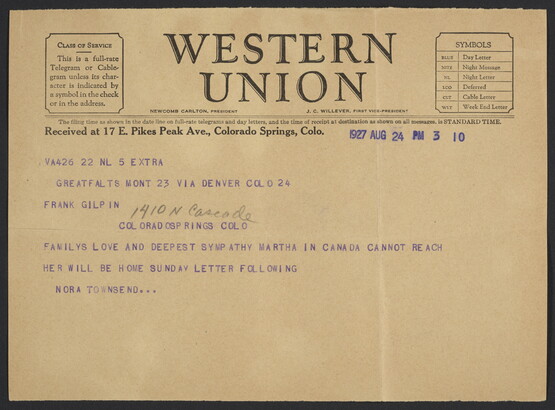 CLASS OF SERVICE
This is a full-rate
Telegram or Cable-
gram unless its char-
acter is indicated by
a symbol in the check
or in the address.
WESTERN
UNION
NEWCOMB CARLTON, PRESIDENT
J. C. WILLEVER, FIRST VICE-PRESIDENT
SYMBOLS
BLUE Day Letter
NITE Night Message
NL Night Letter
LCO Deferred
CLT Cable Letter
WLT Week End Letter
The filing time as shown in the date line on full-rate telegrams and day letters, and the time of receipt at destination as shown on all messages, is STANDARD TIME.
Received at 17 E. Pikes Peak Ave., Colorado Springs, Colo.
1927 AUG 24 PM 3 10
.VA426 22 NL 5 EXTRA
GREATFALTS MONT 23 VIA DENVER COLO 24
FRANK GILPIN
1410 N Cascade
COLORADOSPRINGS COLO
FAMILYS LOVE AND DEEPEST SYMPATHY MARTHA IN CANADA CANNOT REACH
HER WILL BE HOME SUNDAY LETTER FOLLOWING
NORA TOWNSEND...